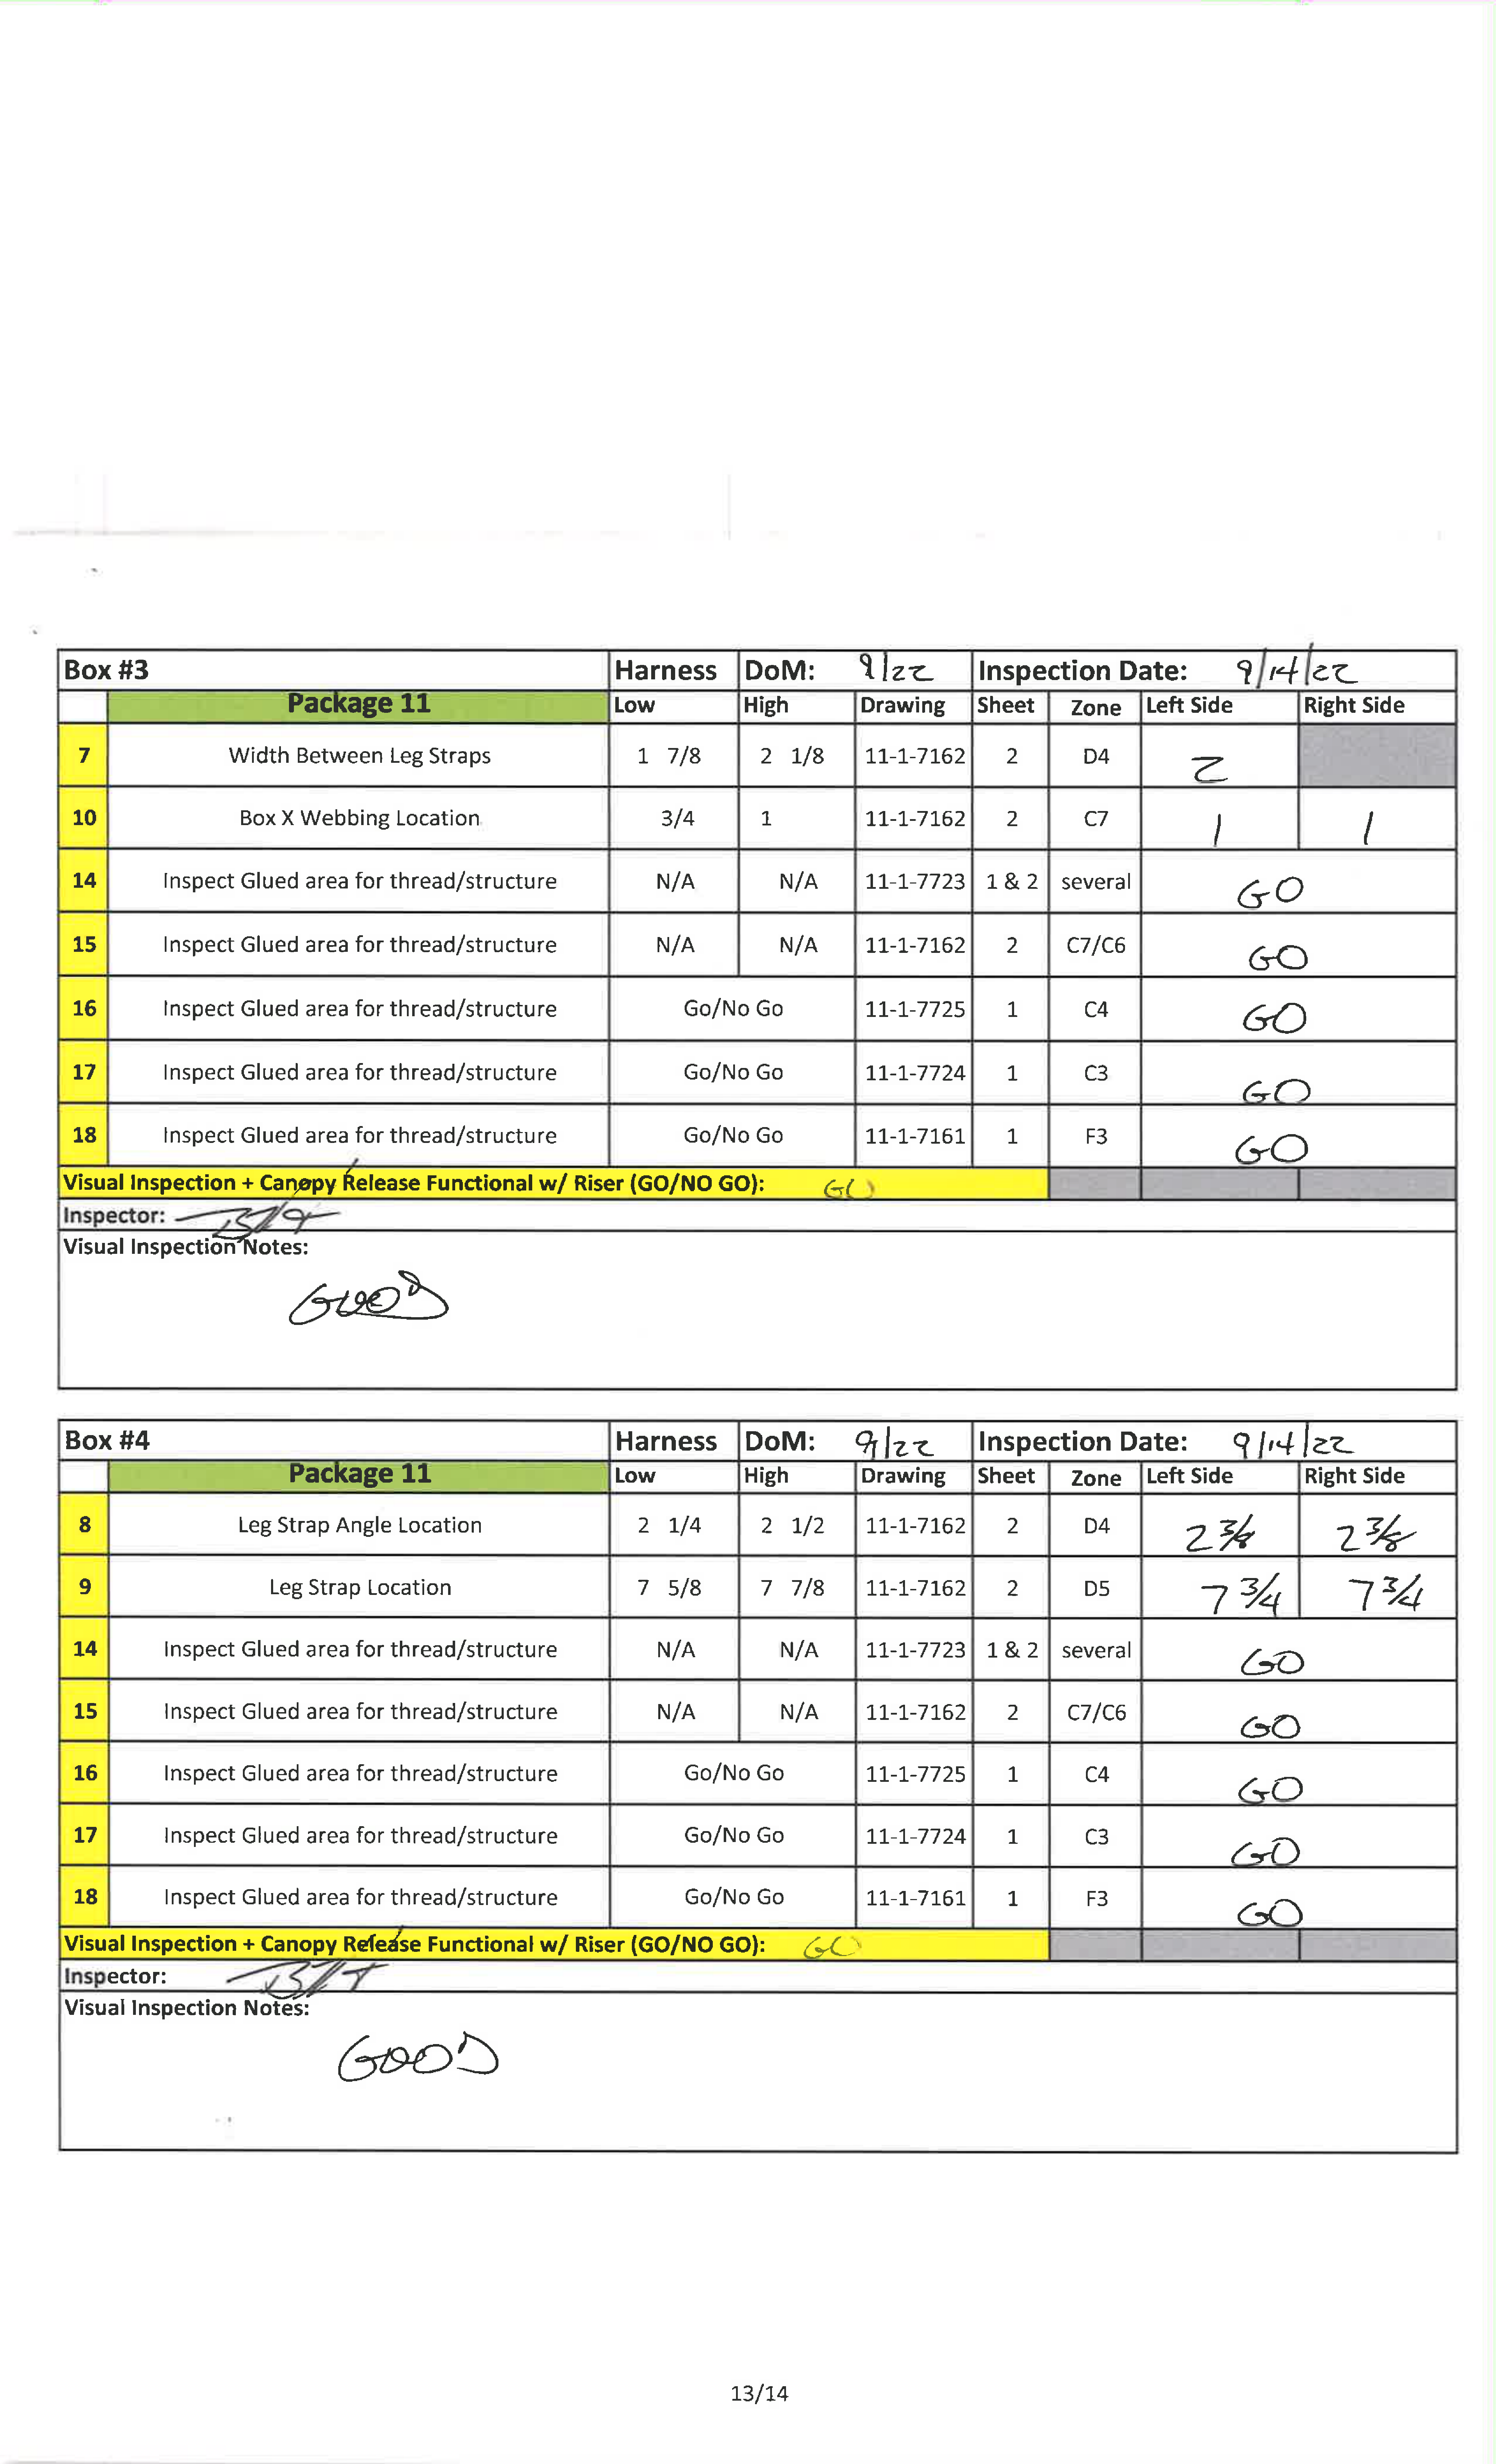 Box #3 Harness DoM: 9/22 Inspection Date: 9/14/22
Package 11 Low High Drawing Sheet Zone Left Side Right Side
7 Width Between Leg Straps 1 7/8 2 1/8 11-1-7162 2 D4 2
10 Box X Webbing Location 3/4 1 11-1-7162 2 C7 1 1
14 Inspect Glued area for thread/structure N/A N/A 11-1-7723 1 & 2 several GO
15 Inspect Glued area for thread/structure N/A N/A 11-1-7162 2 C7/C6 GO
16 Inspect Glued area for thread/structure Go/No Go 11-1-7725 1 C4 GO
17 Inspect Glued area for thread/structure Go/No Go 11-1-7724 1 C3 GO
18 Inspect Glued area for thread/structure Go/No Go 11-1-7161 1 F3 GO
Visual Inspection + Canopy Release Functional w/ Riser (GO/NO GO): GO
Inspector:
Visual Inspection Notes:
GOOD
Box #4 Harness DoM: 9/22 Inspection Date: 9/14/22
Package 11 Low High Drawing Sheet Zone Left Side Right Side
8 Leg Strap Angle Location 2 1/4 2 1/2 11-1-7162 2 D4 2 3/8 2 3/8
9 Leg Strap Location 7 5/8 7 7/8 11-1-7162 2 D5 7 3/4 7 3/4
14 Inspect Glued area for thread/structure N/A N/A 11-1-7723 1 & 2 several GO
15 Inspect Glued area for thread/structure N/A N/A 11-1-7162 2 C7/C6 GO
16 Inspect Glued area for thread/structure Go/No Go 11-1-7725 1 C4 GO
17 Inspect Glued area for thread/structure Go/No Go 11-1-7724 1 C3 GO
18 Inspect Glued area for thread/structure Go/No Go 11-1-7161 1 F3 GO
Visual Inspection + Canopy Release Functional w/ Riser (GO/NO GO): GO
Inspector:
Visual Inspection Notes:
GOOD
13/14